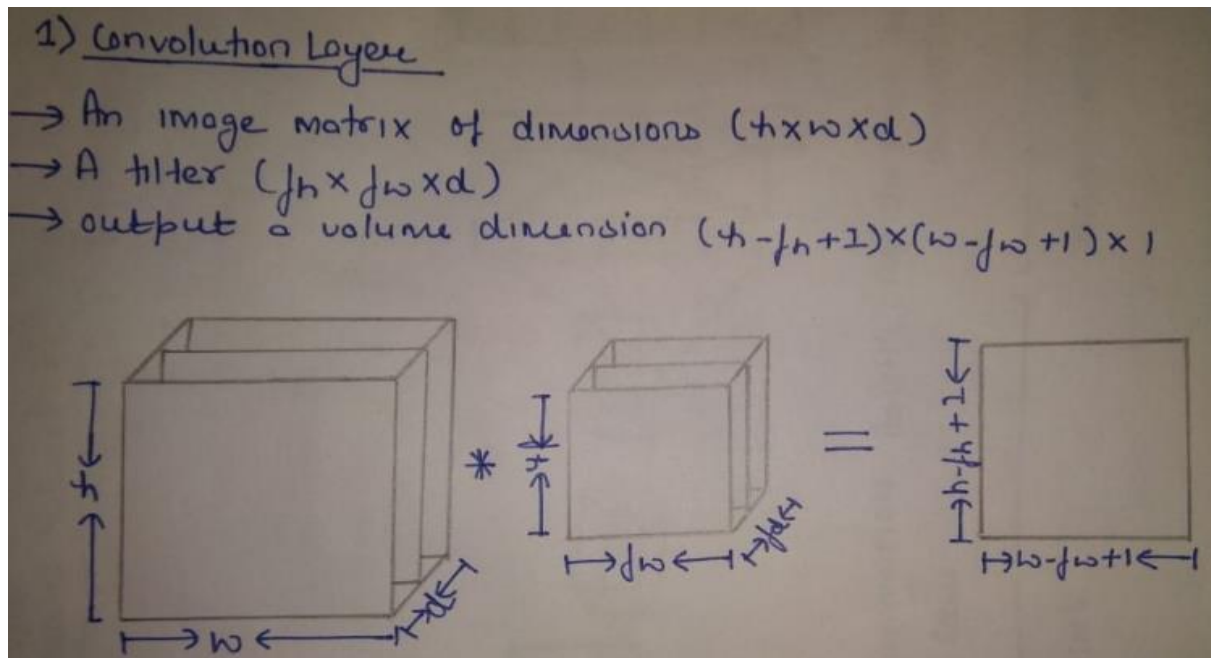 1) Convolution Layer
→ An image matrix of dimensions (h×w×d)
→ A filter (fh × fw×d)
→ output a volume dimension (h-fh+1)×(w-fw+1)×1
h
w
d
*
fh
fw
fd
=
h-fh+1
w-fw+1